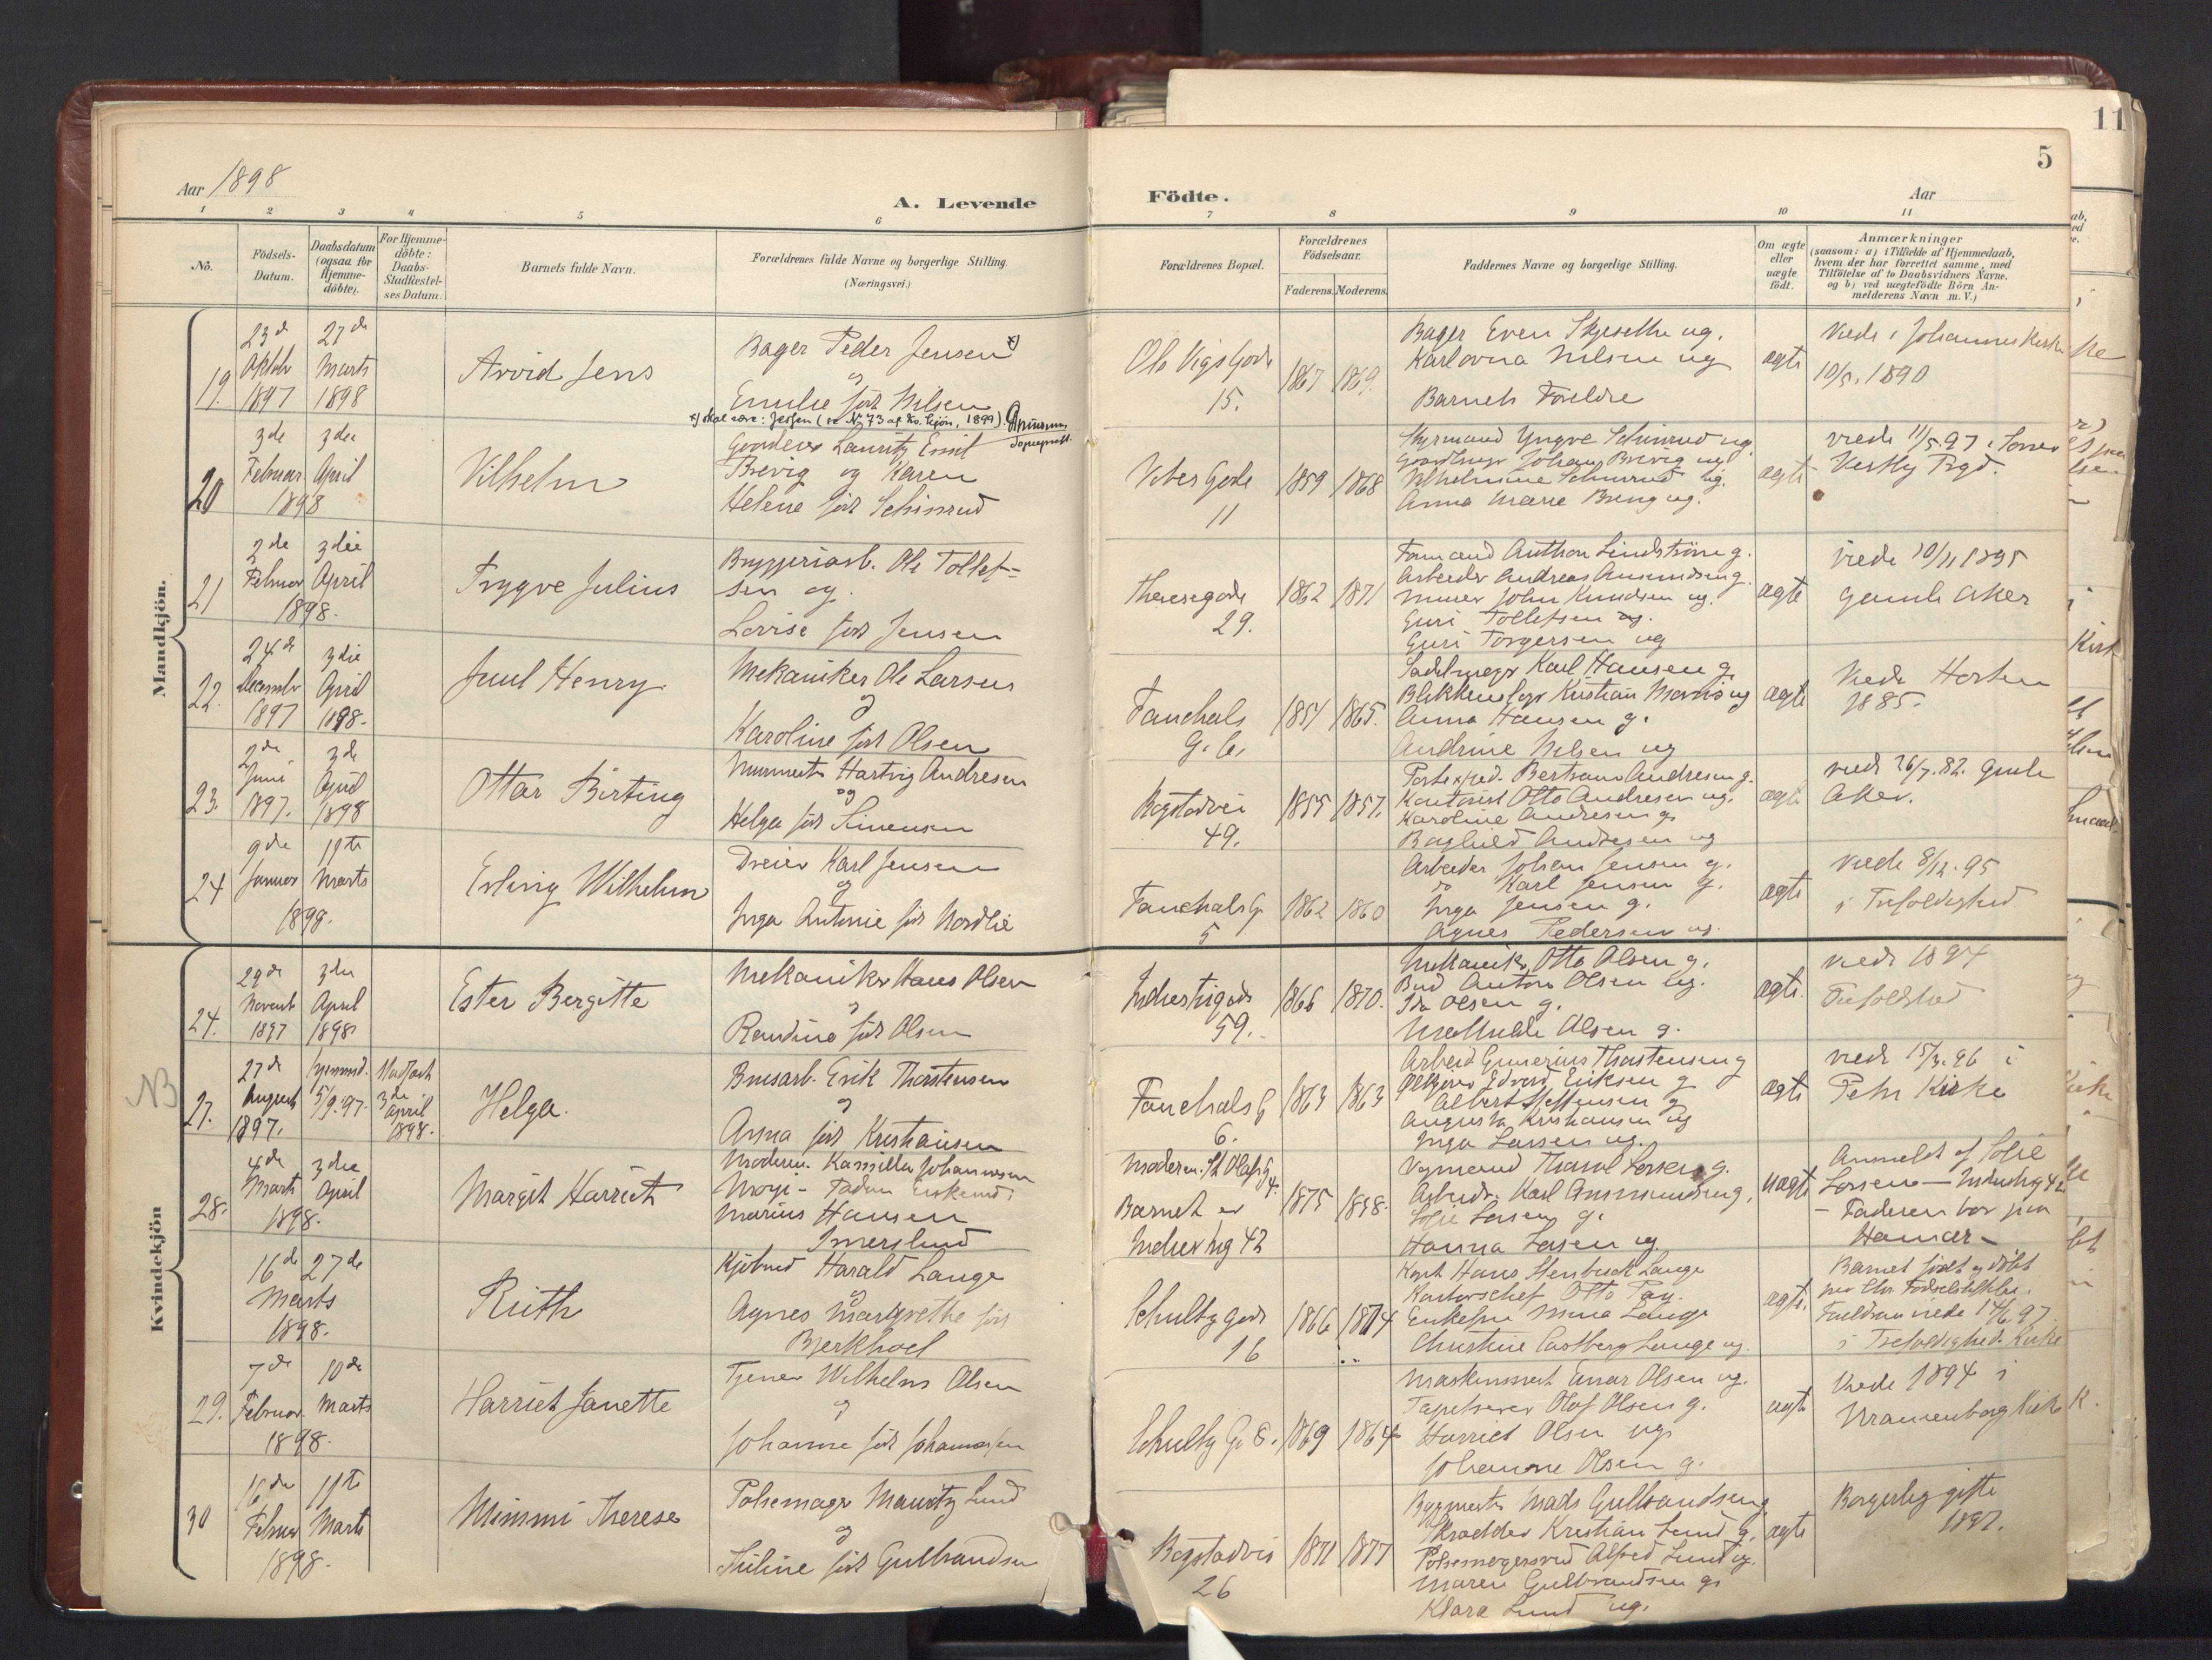 11
5
Aar 1898
A. Levende
Födte.
Aar
1 2 3 4 5 6 7 8 9 10 11
No.
Födsels-
Datum.
Daabsdatum
(ogsaa for
Hjemme-
döbte).
For Hjemme-
döbte:
Daabs-
Stadfæstel-
ses Datum.
Barnets fulde Navn.
Forældrenes fulde Navne og borgerlige Stilling.
(Næringsvei.)
Forældrenes Bopæl.
Forældrenes
Födselsaar.
Faderens. Moderens.
Faddernes Navne og borgerlige Stilling.
Om ægte
eller
uægte
födt.
Anmærkninger
(saasom: a) i Tilfælde af Hjemmedaab,
hvem der har forrettet samme, med
Tilföielse af to Daabsvidners Navne,
og b) ved uægtefödte Börn An-
melderens Navn m. V.)
Mandkjön.
19.
23de
Oktbr
1897
27de
Marts
1898
Arvid Jens
Bager Peder Jensen x)
og
Emilie født Nilsen
x) skal være: Jessen (se No 73 af Kv. kjøn, 1899).
Ole Vigs Gade
15.
1867
1869.
Bager Even Skjeseth ug.
Karlovna Nilsen ug
Barnets Foreldre
ægte
Viede i Johannes Kirke
10/5. 1890
20
3de
Februar
3die
April
1898
Vilhelm
Lauritz Emil
Brevig og Karen
Helene født Schinrud
Vibes Gade
11
1859
1868
Styrmand Yngve Schinrud ug.
Johan Brevig ug
Vilhelmine Schinrud ug.
Anna Marie Brevig ug.
ægte
viede 11/5. 97 i
Vestby Prgd.
21
2de
Februar
3die
April
1898.
Trygve Julius
Bryggeriarb. Ole Tollef-
sen og
Lovise født Jensen
Theresegade
29.
1862
1871
Formand Anthon Lindstrøm g.
Arbeider Andreas Amundsen g.
Murer John Knudsen ug.
Guri Tollefsen ug.
Guri Torgersen ug
ægte
viede 10/11 1895
gamle Aker
22.
24de
Decembr
1897
3die
April
1898.
Juul Henry
Mekaniker Ole Larsen
og
Karoline født Olsen
Fauchals
G. 6.
1854
1865.
Sadelmager Karl Hansen g.
Kristian ug
Anna Hansen g.
Andrine Nilsen ug
ægte
Viede Horten
1885.
23.
2de
Juni
1897.
3de
April
1898
Ottar Birting
Murmester Hartvig Andresen
og
Helga født Simensen
Bogstadvei
49.
1855
1857.
Postexped. Bertram Andresen g.
Kontorist Otto Andresen ug.
Karoline Andresen g.
Andresen ug
ægte
viede 26/7. 82. Gamle
Aker.
24
9de
Januar
11te
Marts
1898.
Erling Wilhelm
Dreier Karl Jensen
og
Inga Antonie født Nordlie
Fauchals G.
5
1862
1860
Arbeider Johan Jensen g.
do Karl Jensen g.
Inga Jensen g.
Agnes Pedersen ug.
ægte
viede 8/12. 95
i Trefoldighed
Kvindekjön
24.
29de
Novemb
1897
3die
April
1898.
Ester Bergitte
Mekaniker Hans Olsen
og
Randine født Olsen
Industrigade
59.
1866
1870.
Mekaniker Otto Olsen g.
Bud Anton Olsen ug.
Ida Olsen g.
Mathilde Olsen g.
ægte.
viede 1894
NB
27.
27de
August
1897.
hjemmed.
5/9. 97.
Stadfæst
3de
April
1898.
Helga.
Erik Thorstensen
og
Anna født Kristiansen
Fauchals G
6.
1863
1863
Arbeid Gunerius Thorstensen g
Edvard Eriksen g
Albert Steffensen g
Augusta Kristiansen ug
Inga Larsen ug.
ægte
viede 15/3. 96 i
Petri Kirke
28.
4de
Marts
3die
April
1898.
Margit Harriet
Moderen. Kamilla Johannesen
Moyi - Faderen
Marius Hansen
Imerslund
Moderen. St. Olafs G 4.
Barnet er
Industrig 42
1875
1898.
Larsen g.
Arbeider Karl Ammundsen g.
Sofie Larsen g.
Hanna Larsen ug
uægte
Anmeldt af Sofie
Larsen - Industrig 42
- Faderen bor paa
Hamar -
16de
27de
Marts
1898.
Ruth
Kjøbmd Harald Lange
og
Agnes Margrethe født
Bjerkhoel
Schultzgade
16
1866
1874
Kapt Hans Stenbuch Lange
Kontorschef Otto
Enkefru Mina Lange
Christine Castberg Lange ug.
ægte.
Barnet født og døbt
Forældrene viede 14/6. 97
i Trefoldighed. Kirke
29.
7de
Februar
10de
Marts
1898.
Harriet Janette
Tjener Wilhelm Olsen
og
Johanne født Johannesen
Schultz G. 8.
1869
1864
Maskinmest Einar Olsen ug.
Tapetserer Olaf Olsen g.
Harriet Olsen ug.
Johanne Olsen g.
ægte
Viede 1894 i
Uranienborg Kirke
30
16de
Februar
11te
Marts
1898.
Mimmi Therese
Pølsemager Mauritz Lund
og
Juline født Gulbrandsen
Bogstadvei
26
1871
1877
Bygmester Mads Gulbrandsen g.
Skrædder Kristian Lund g.
Pølsemagersvend Alfred Lund ug.
Maren Gulbrandsen g.
Klara Lund ug.
ægte
Borgerlig gifte
1897.